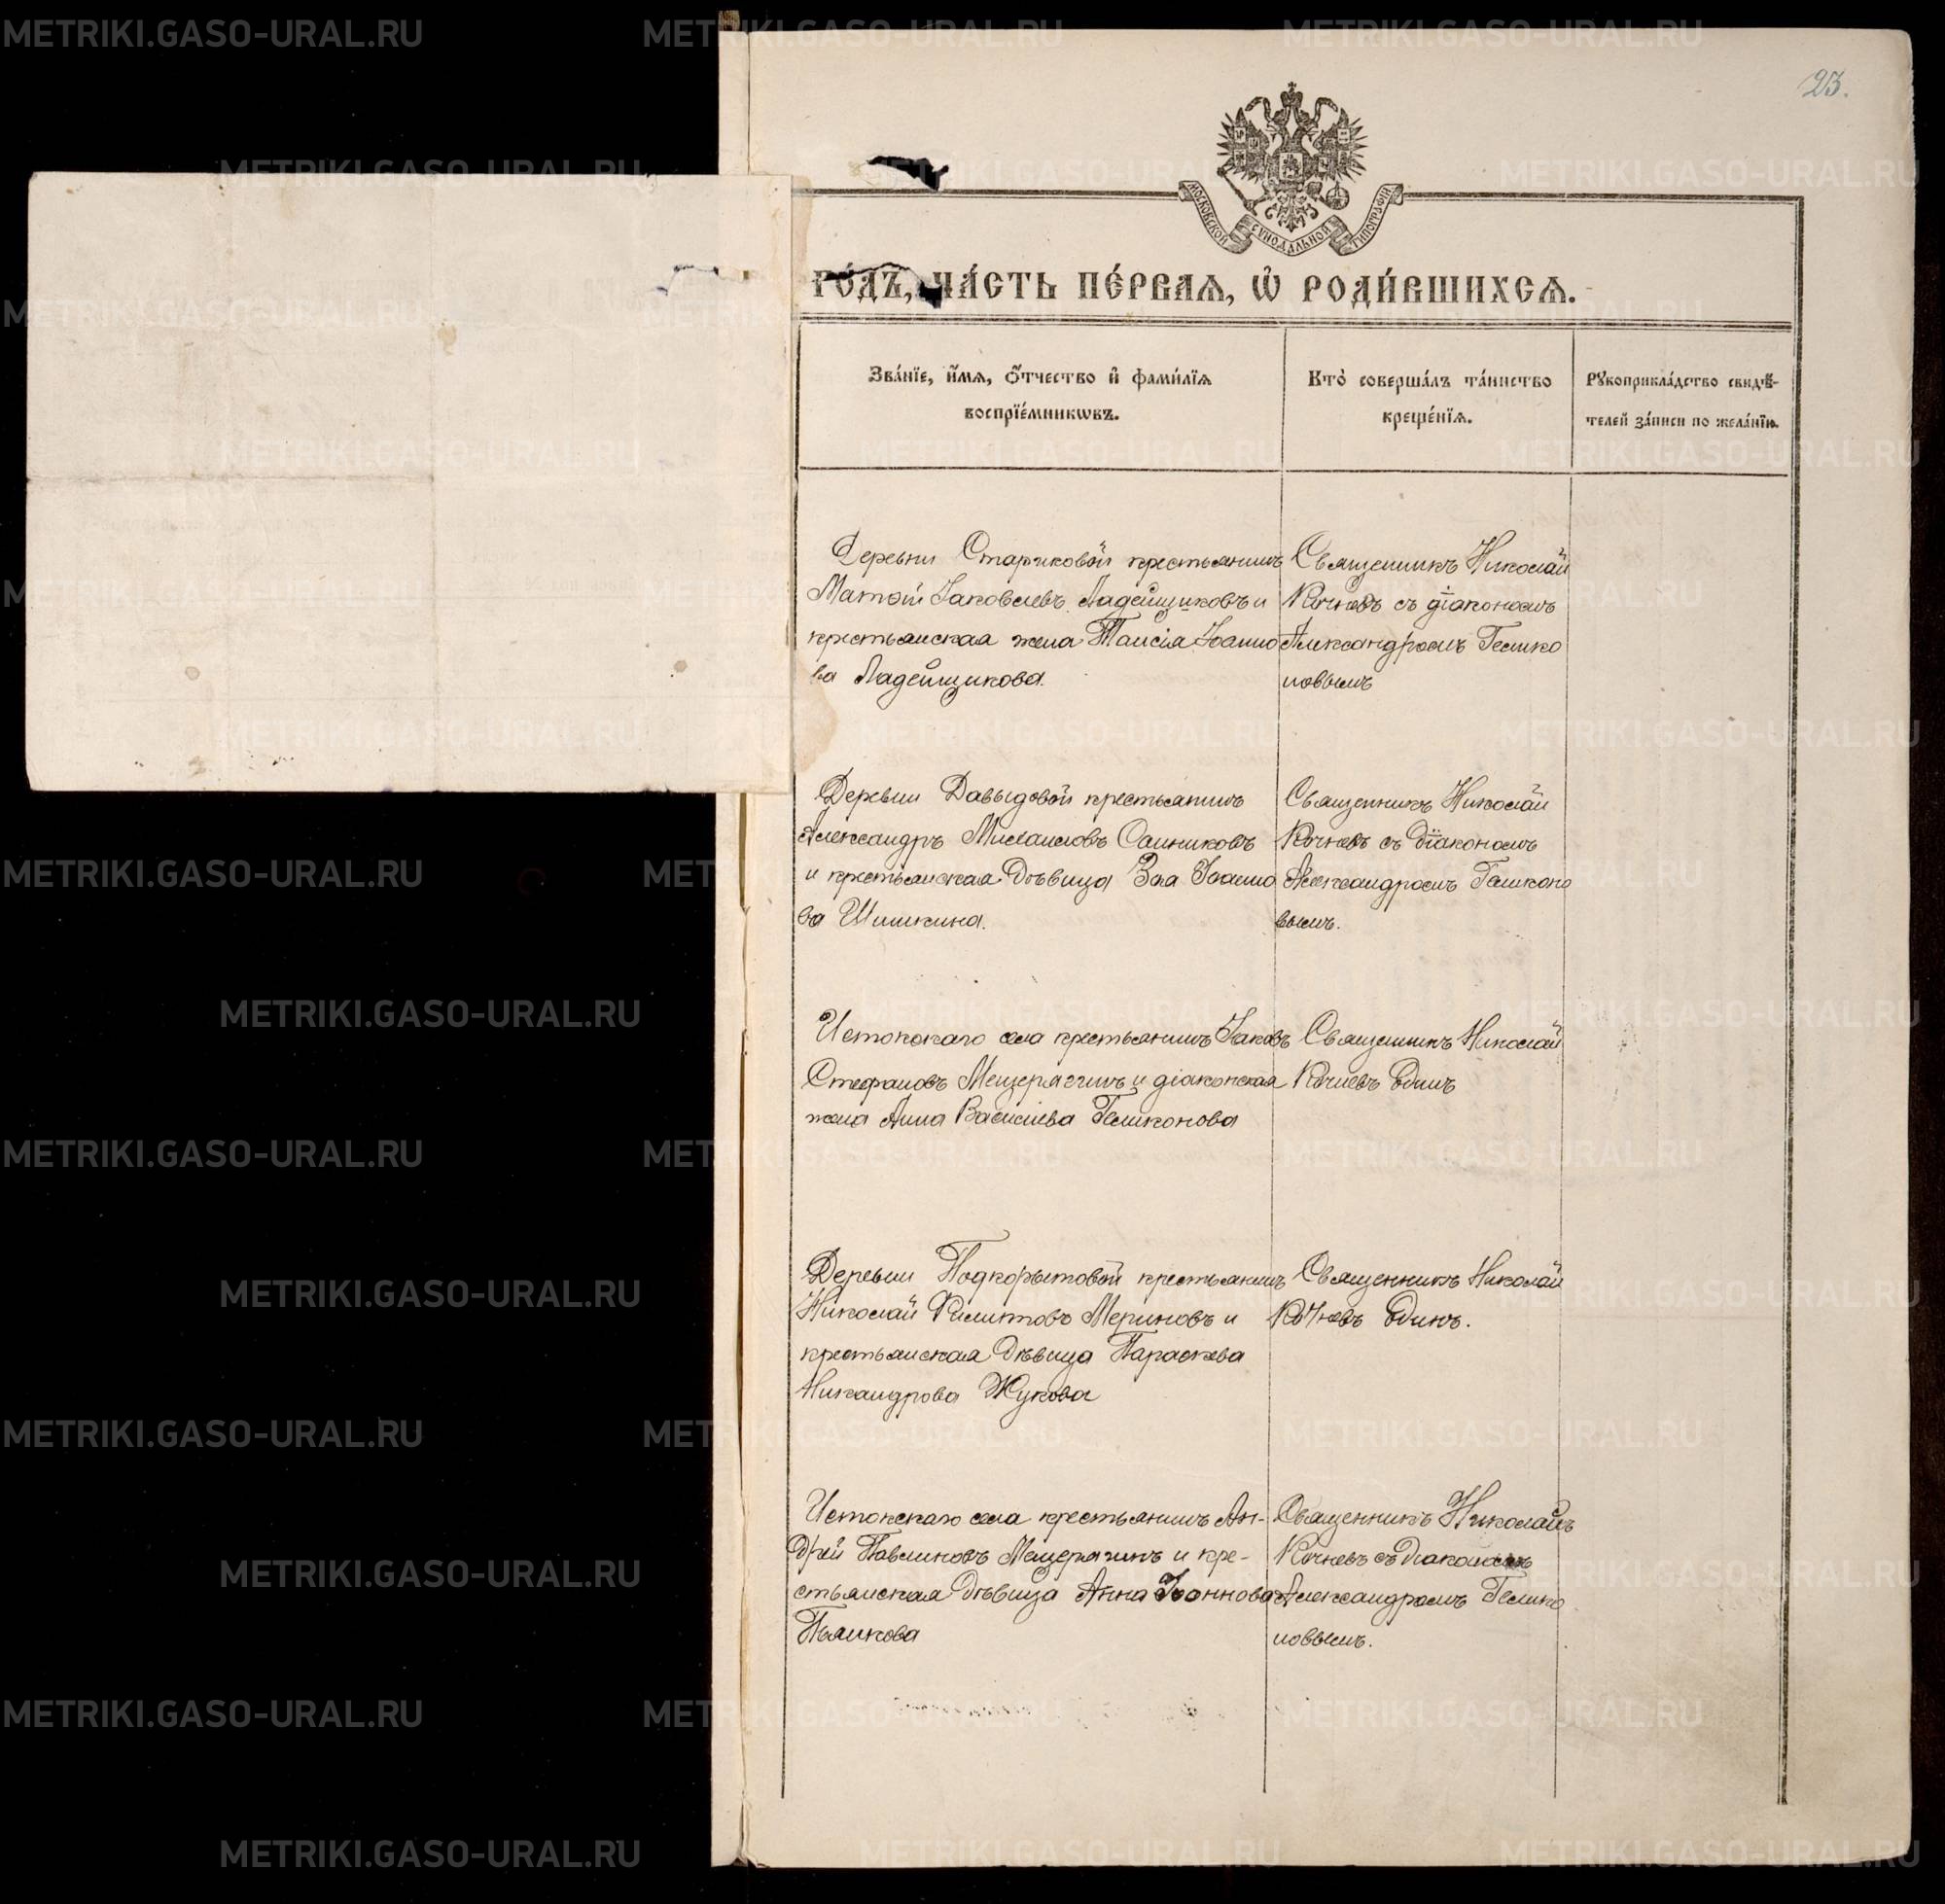 23.
МОСКОВСКОЙ СѴНОДАЛЬНОЙ ТИПОГРАФІИ
ГО́ДЪ, ЧА́СТЬ ПЕ́РВАѦ, Ѡ҆ РОДИ́ВШИХСѦ.
Зва́нїе, и҆́мѧ, ѻ҆́тчество и҆ фами́лїѧ
воспрїе́мникѡвъ.
Кто̀ соверша́лъ та́инство
креще́нїѧ.
Рꙋкоприкла́дство свидѣ́-
телей за́писи по жела́нїю.
Деревни Стариковой крестьянинъ
Матѳій Іаковлевъ Ладейщиковъ и
крестьянская жена Таисія Іоанно
ва Ладейщикова.
Священникъ Николай
Кочневъ съ діакономъ
Александромъ Гелико
новымъ
Деревни Давыдовой крестьянинъ
Александръ Санниковъ
и крестьянская дѣвица Зоя Іоанно
ва Шишкина.
Священникъ Николай
Кочневъ съ діакономъ
Александромъ Геликоно
вымъ.
Истокскаго села крестьянинъ Іаковъ
Стефановъ Мещерягинъ и діаконская
жена Анна Васильева Геликонова
Священникъ Николай
Кочневъ Единъ
Деревни Подкорытовой крестьянинъ
Николай Филитовъ Мериновъ и
крестьянская дѣвица Параскева
Никандрова Жукова
Священникъ Николай
Кочневъ Единъ.
Истокскаго села крестьянинъ Ан-
дрей Павлиновъ Мещерягинъ и кре-
стьянская дѣвица Анна Іоаннова
Пьянкова
Священникъ Николай
Кочневъ съ діакономъ
Александромъ Гелико
новымъ.
METRIKI.GASO-URAL.RU